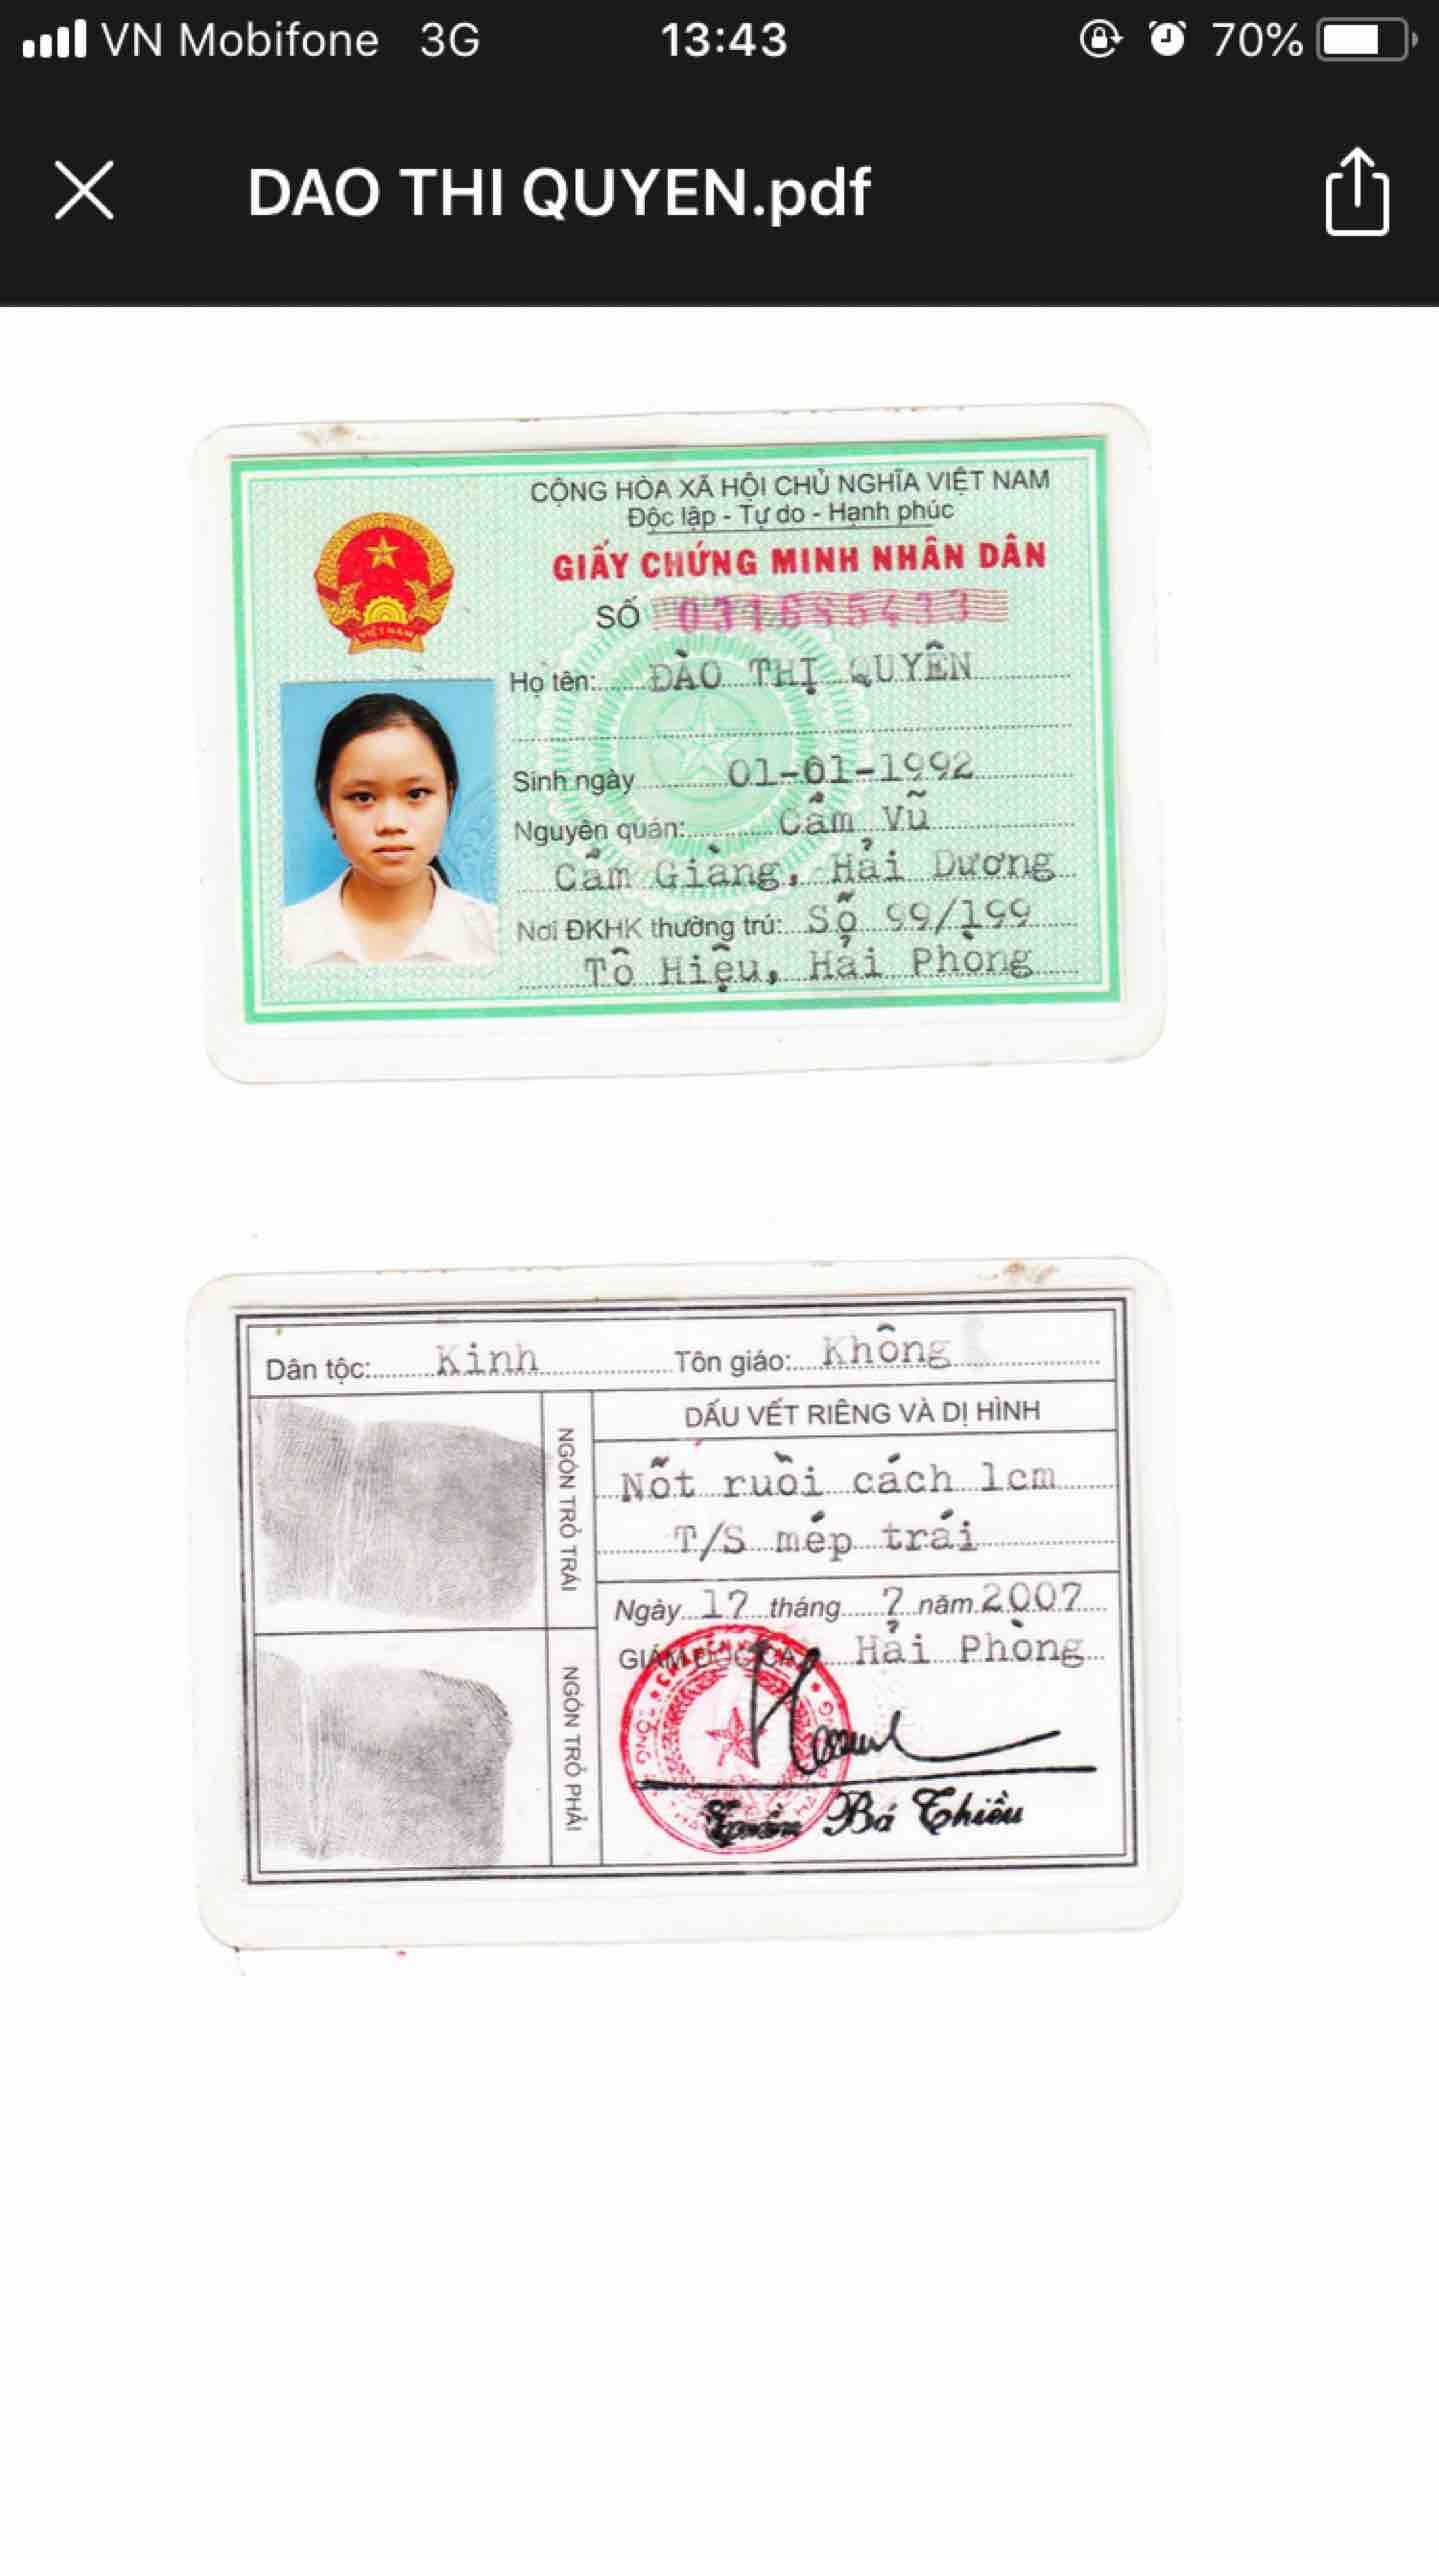 VN Mobifone 3G 13:43 70%
DAO THI QUYEN.pdf
CỘNG HÒA XÃ HỘI CHỦ NGHĨA VIỆT NAM
Độc lập - Tự do - Hạnh phúc
GIẤY CHỨNG MINH NHÂN DÂN
SỐ 031685433
Họ tên: ĐÀO THỊ QUYÊN
Sinh ngày 01-01-1992
Nguyên quán: Cẩm Vũ
Cẩm Giàng, Hải Dương
Nơi ĐKHK thường trú: Số 99/199
Tô Hiệu, Hải Phòng
VIỆT NAM
Dân tộc: Kinh Tôn giáo: Không
NGÓN TRỎ TRÁI
NGÓN TRỎ PHẢI
DẤU VẾT RIÊNG VÀ DỊ HÌNH
Nốt ruồi cách 1cm
T/S mép trái
Ngày 17 tháng 7 năm 2007
GIÁM ĐỐC CA Hải Phòng
Trần Bá Thiều